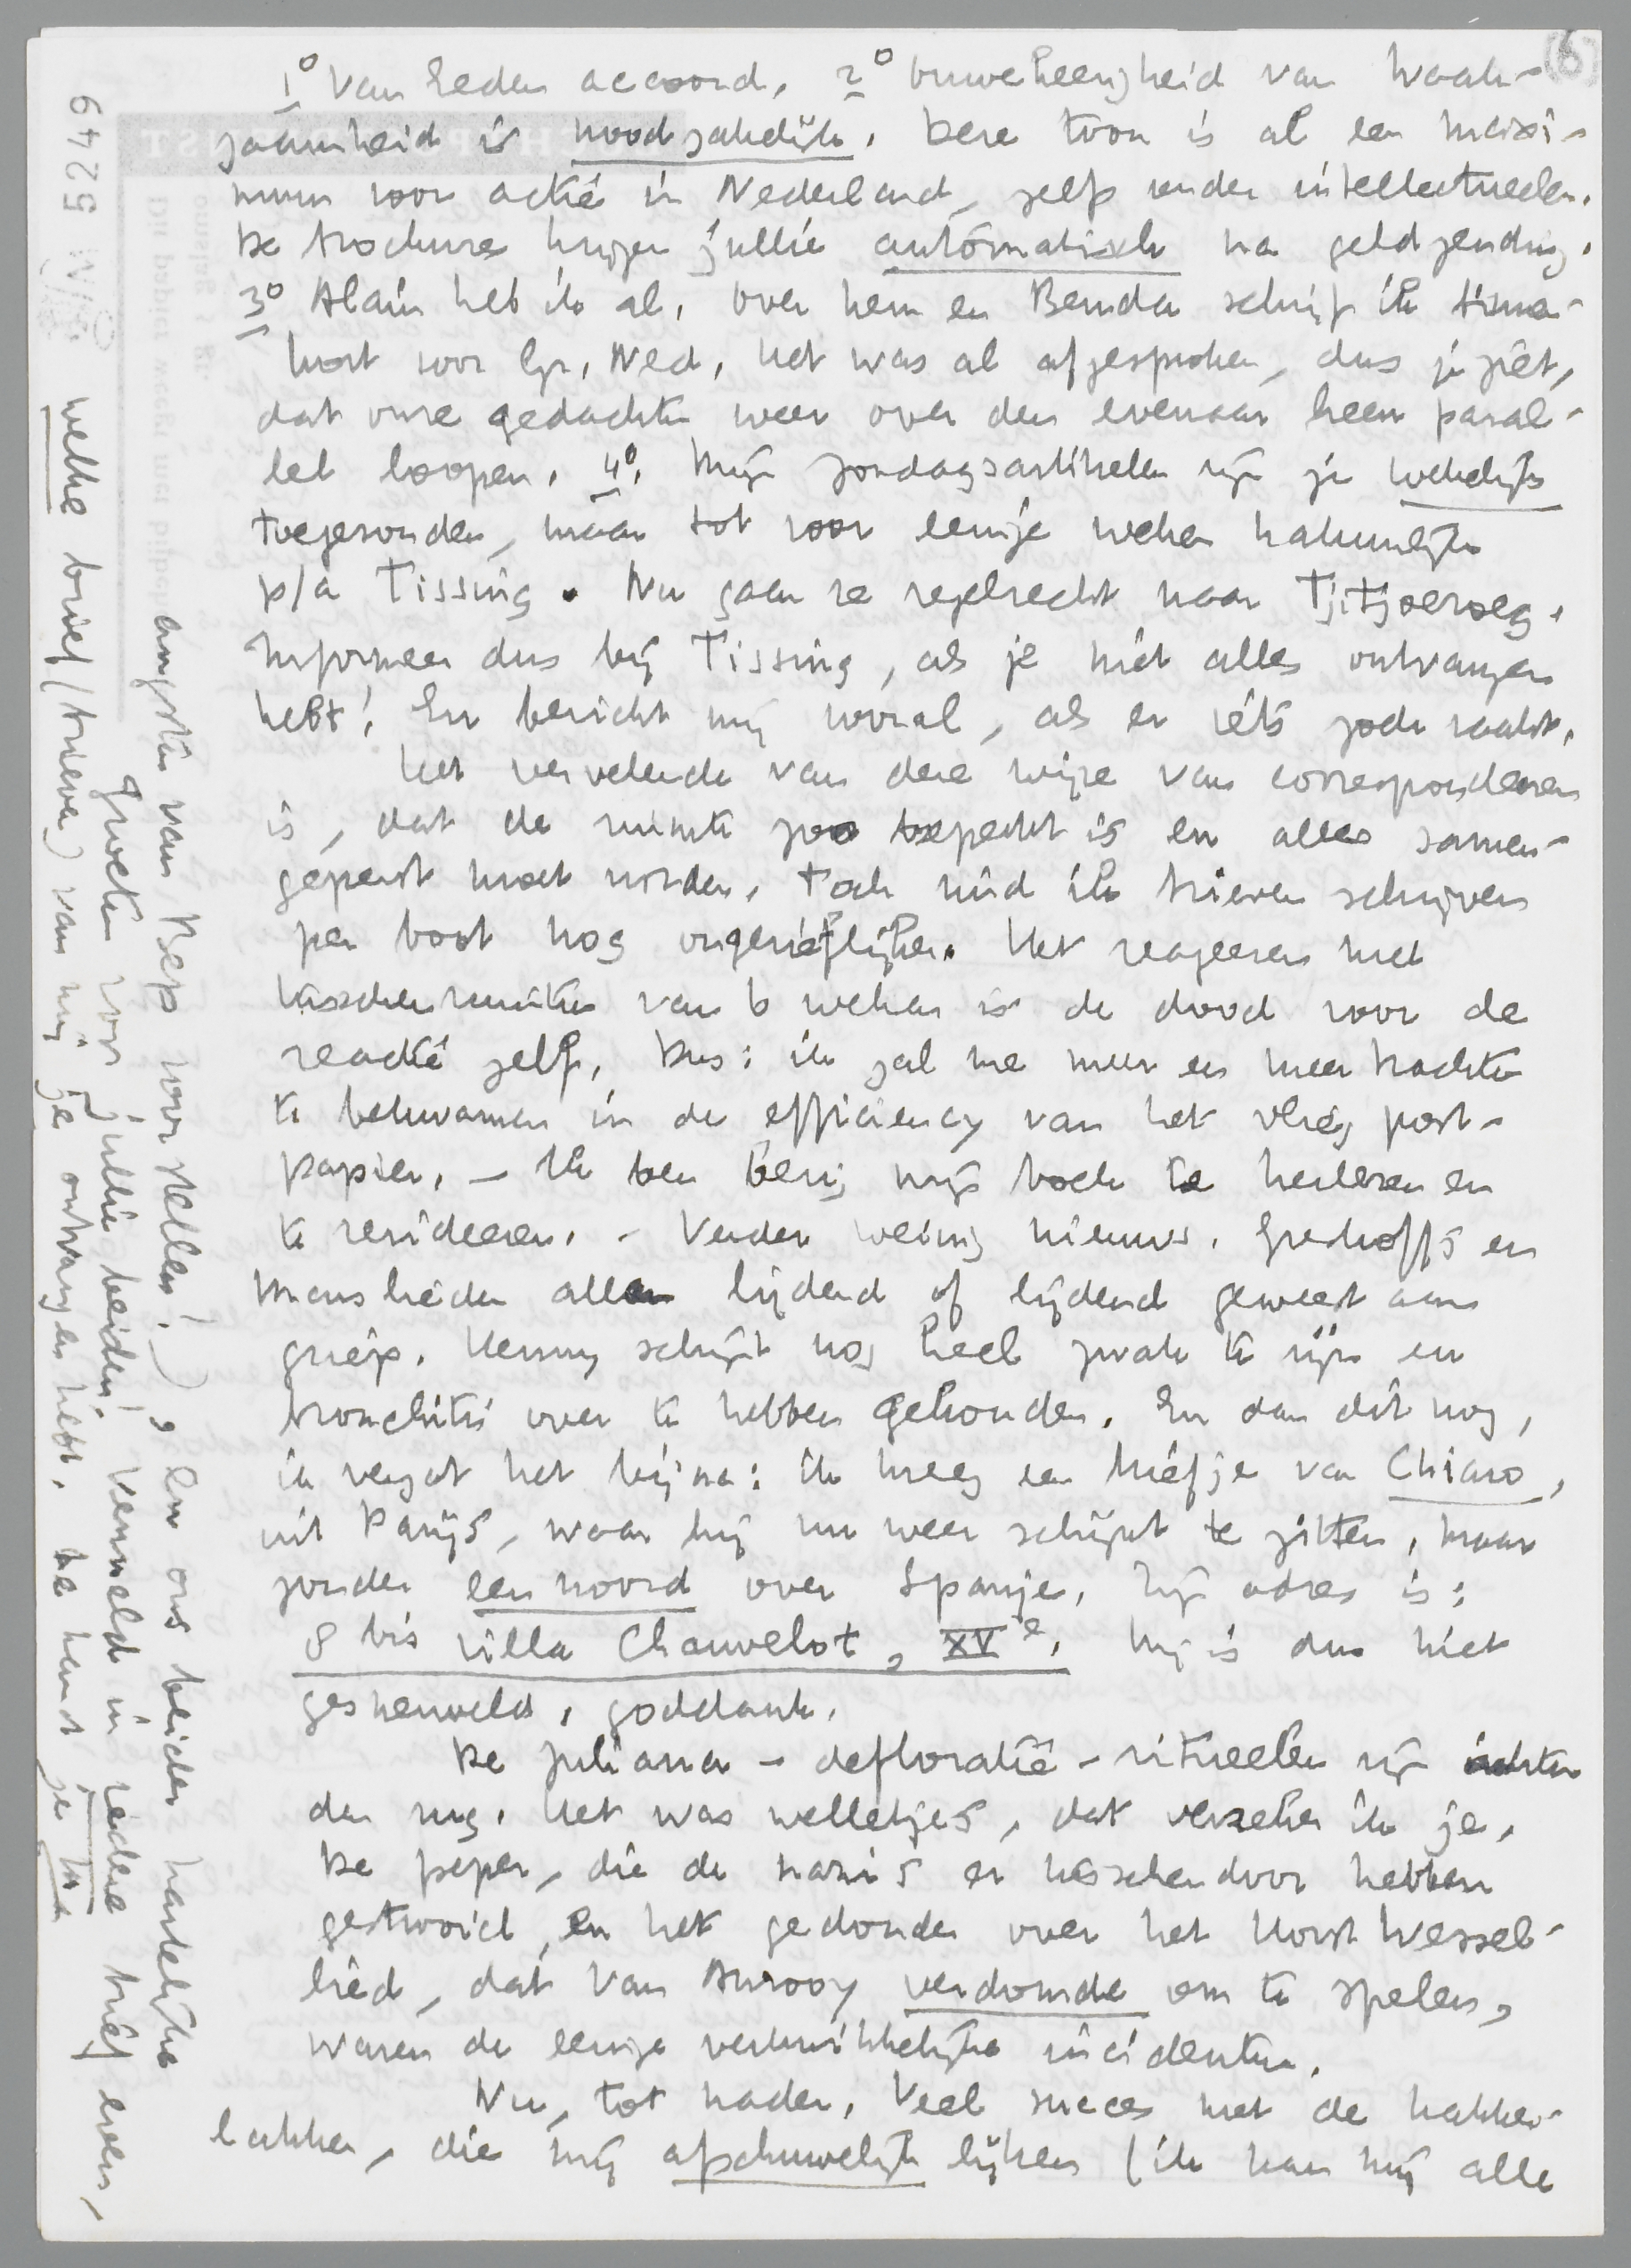 6
1° Van Leden accoord. 2° bruweheerigheid van Waak-
zaamheid is noodzakelijk. Deze toon is al een maxi-
mum voor actie in Nederland, zelfs onder intellectueelen.
De brochures krijgen jullie automatisch na geldzending.
3° Alain heb ik al. Over hem en Benda schrijf ik binnen-
kort voor Gr. Ned. Het was al afgesproken, dus je ziet,
dat onze gedachten weer over den evenaar heen paral-
lel loopen. 4°. Mijn Zondagsartikelen zijn je wekelijks
toegezonden, maar tot voor eenige weken natuurlijk
p/a Tissing. Nu gaan ze regelrecht naar Tjitjoeroeg.
Informeer dus bij Tissing, als je niet alles ontvangen
hebt! En bericht mij vooral, als er iets zoek raakt.
Het vervelende van deze wijze van correspondeeren
is, dat de ruimte zoo beperkt is en alles samen-
geperst moet worden. Toch vind ik brieven schrijven
per boot nog ongerieflijker. Het reageeren met
tusschenruimten van 6 weken is de dood voor de
reactie zelf. Dus: ik zal me meer en meer trachten
te bekwamen in de efficiency van het vlieg post-
papier. – Ik ben bezig mijn boek te herlezen en
te revideeren. – Verder weinig nieuws. Greshoffs en
Marsliedens allen lijdend of lijdend geweest aan
griep. Henny schijnt nog heel zwak te zijn en
bronchitis over te hebben gehouden. En dan dit nog,
ik vergat het bijna: ik kreeg een briefje van Chiaro,
uit Parijs, waar hij nu weer schijnt te zitten, maar
zonder een woord over Spanje. Zijn adres is:
8 bis villa Chauvelot, XVe. Hij is dus niet
gesneuveld, goddank.
De Juliana-defloratie-ritueelen zijn achter
den rug. Het was welletjes, dat verzeker ik je.
De peper, die de nazi's er tusschendoor hebben
gestrooid, en het gedonder over het Horst Wessel-
lied, dat Van Anrooy verdomde om te spelen,
waren de eenige verkwikkelijke incidenten.
Nu, tot nader. Veel succes met de kakker-
lakken, die mij afschuwelijk lijken (ik kan mij alle
angsten van Bep voorstellen!), en ons beider hartelijke
groeten voor jullie beiden! Vermeld in iedere brief even,
welke brief (brieven) van mij je ontvangen hebt.
5249 IV/